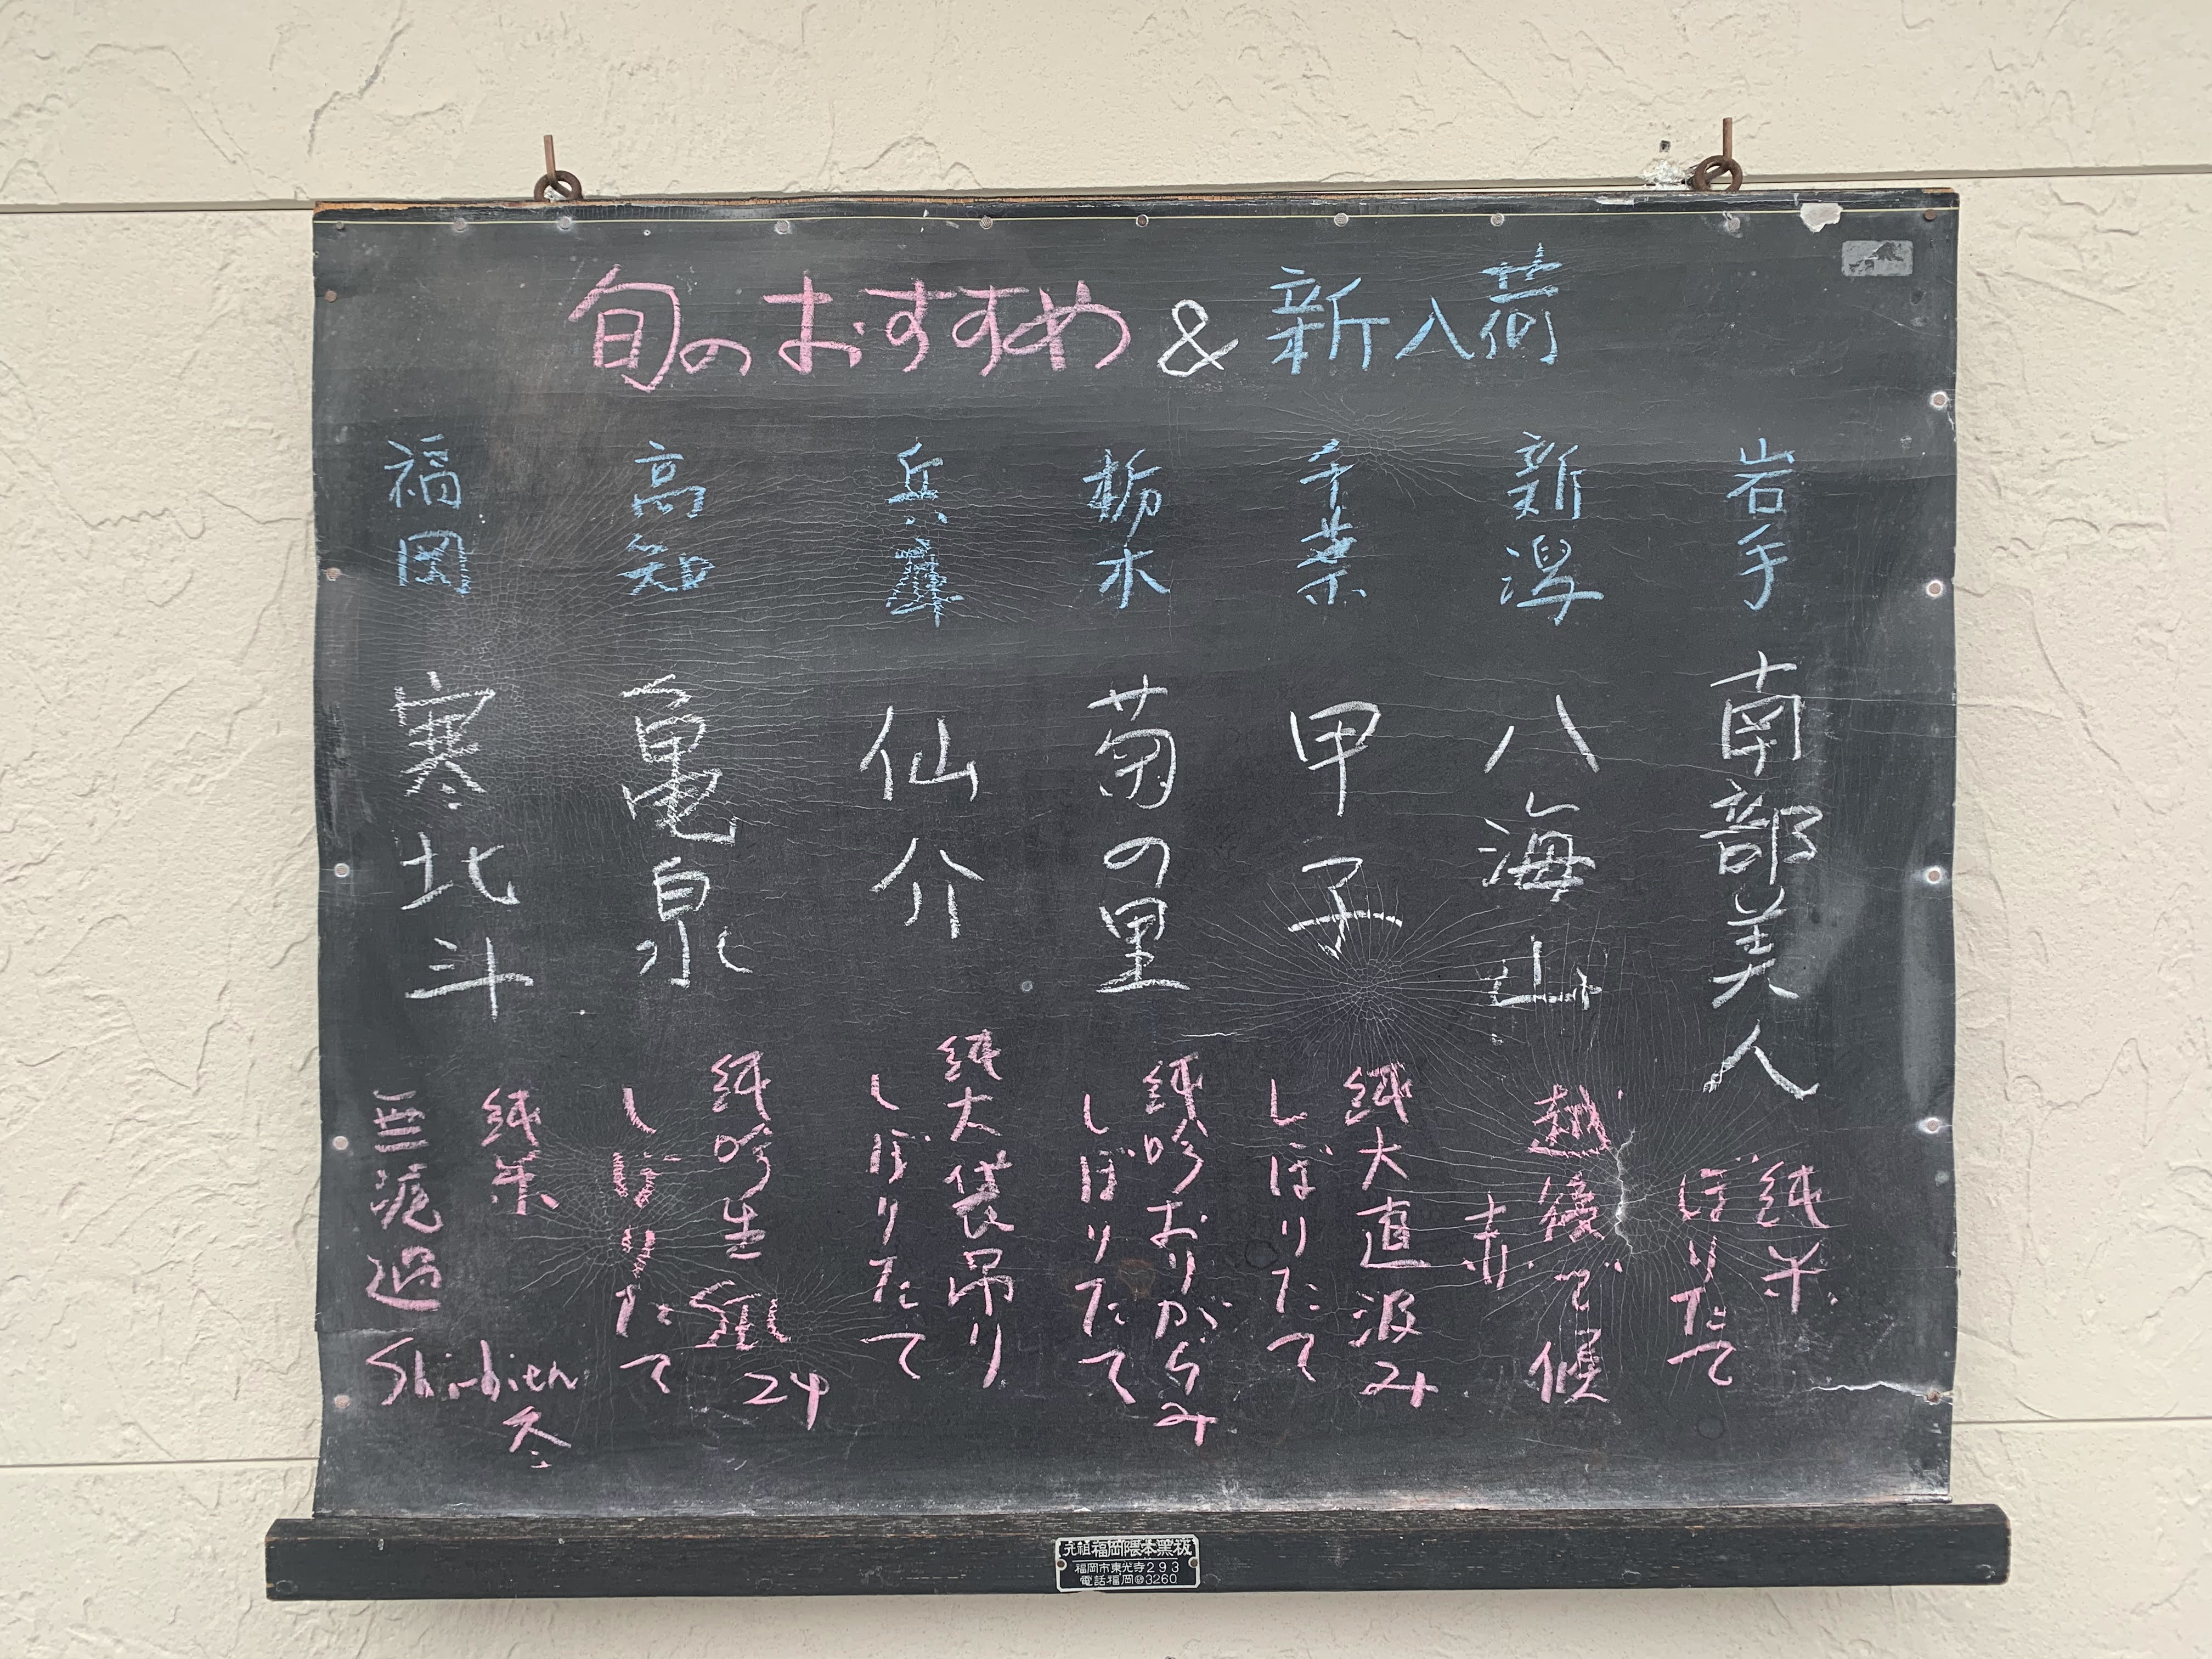 旬のおすすめ & 新入荷
岩手
南部美人
純米
ぼりたて
新潟
八海山
越後で候
赤
千葉
甲子
純大直汲み
しぼりたて
栃木
菊の里
純吟おりがらみ
しぼりたて
兵庫
仙介
純大袋吊り
しぼりたて
高知
亀泉
純吟生 24
しぼりたて
福岡
寒北斗
純米
無濾過
Shi-bien
冬
元祖福岡隈本黒板
福岡市東光寺293
電話福岡3260